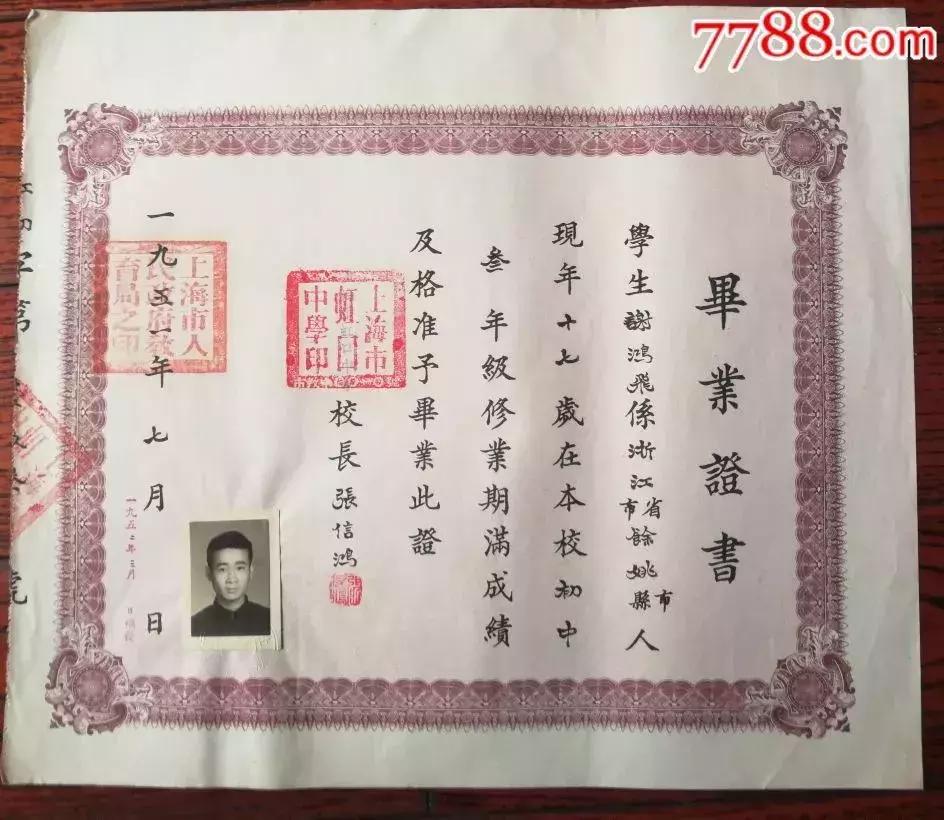 7788.com
畢業證書
學生謝鴻飛係浙江省市餘姚縣市人
現年十七歲在本校初中
叁年級修業期滿成績
及格准予畢業此證
校長張信鴻
上海市虹口中學印
一九五一年七月 日
上海市人民政府教育局之印
一九五二年三月 日
字第
號